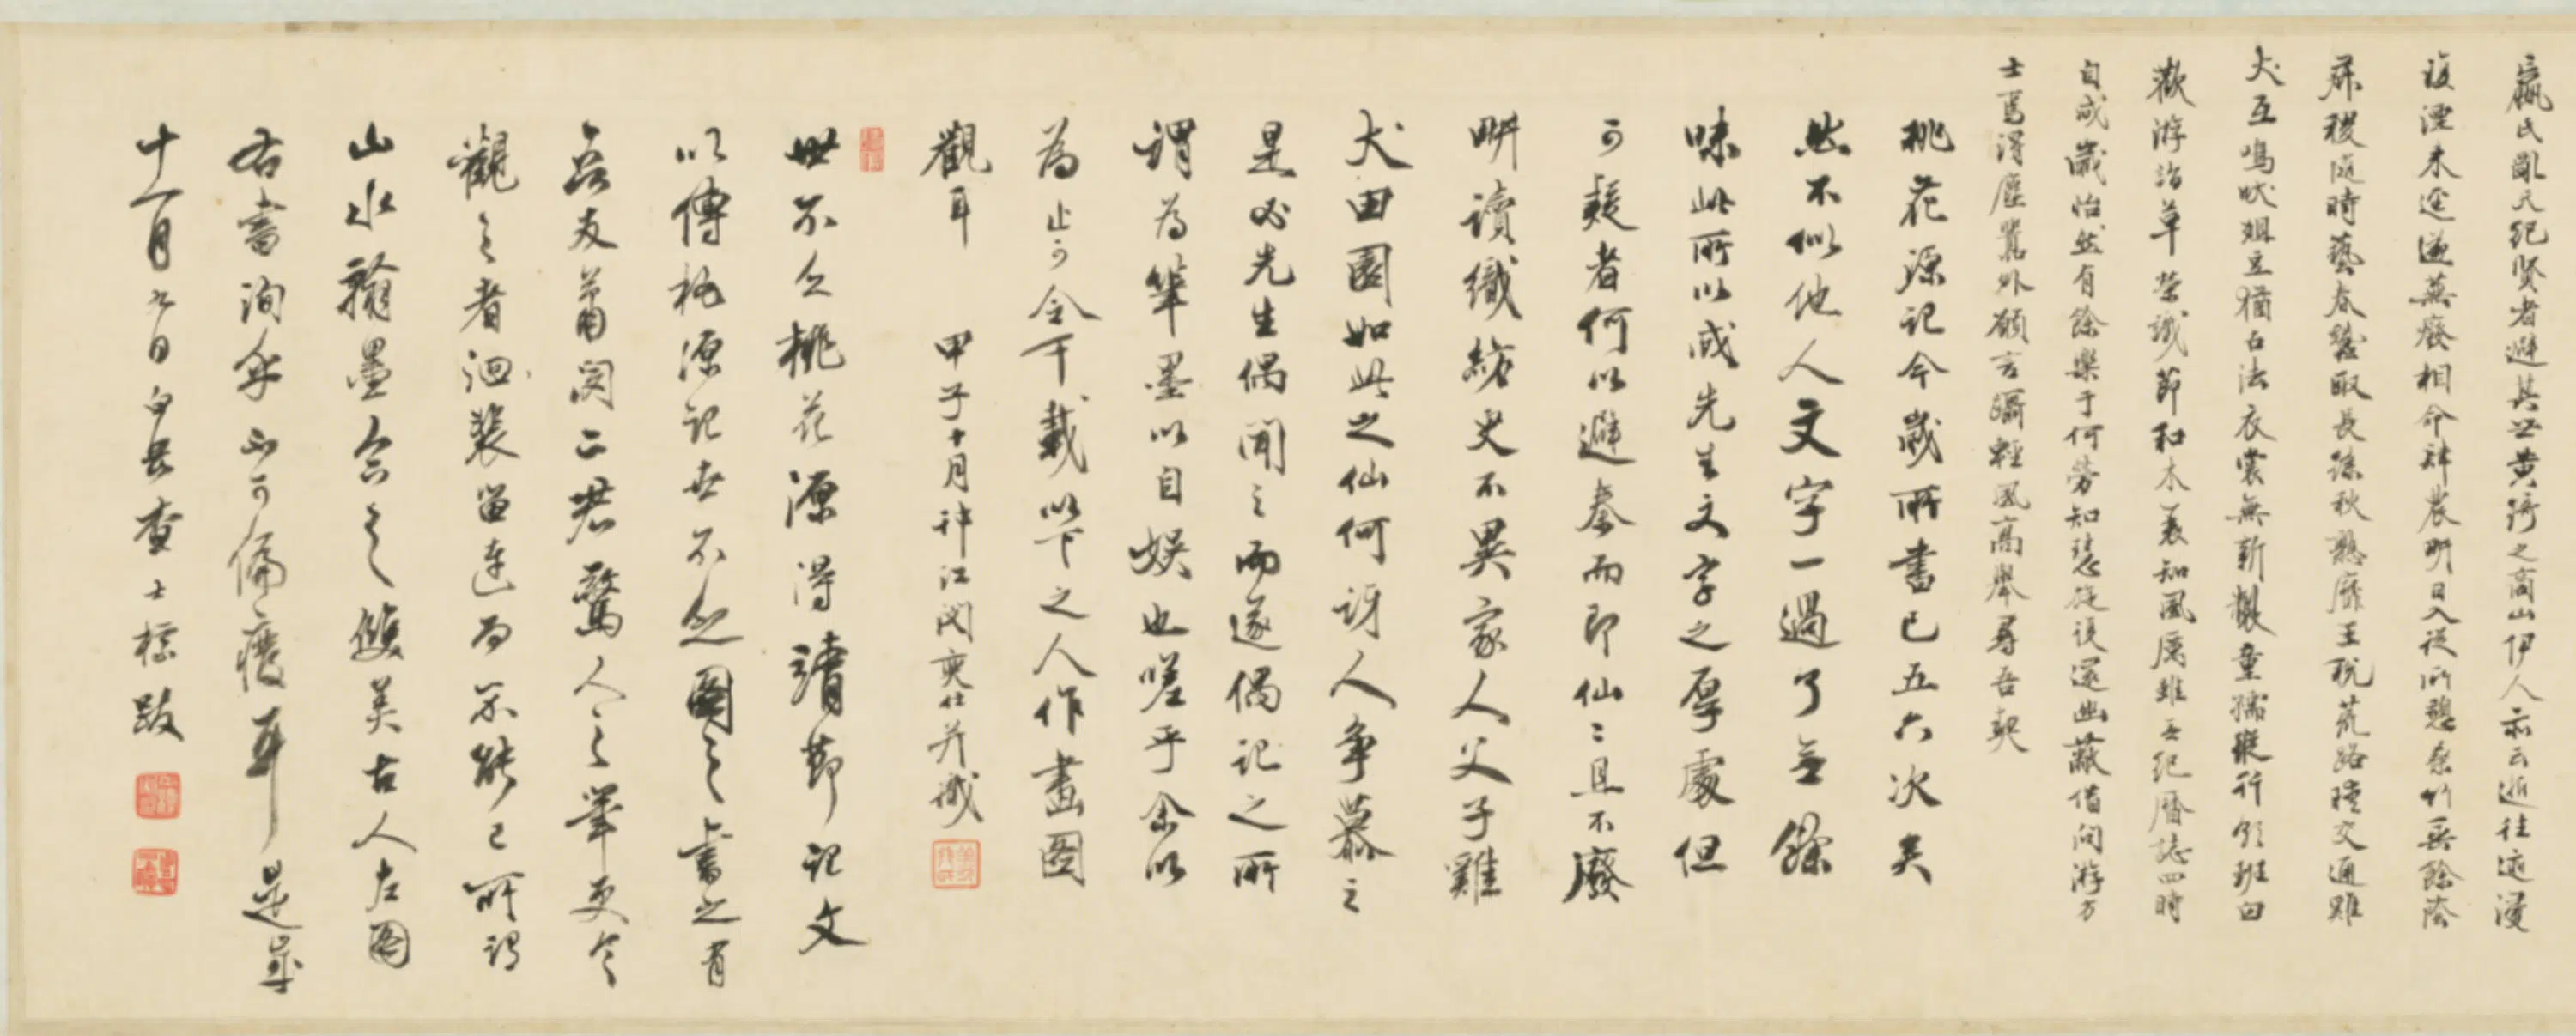 嬴氏亂天紀賢者避其世黃綺之商山伊人亦云逝往迹浸
復湮來逕遂蕪廢相命肆農畊日入從所憩桑竹垂餘蔭
菽稷隨時藝春蠶取長絲秋熟靡王稅荒路曖交通雞
犬互鳴吠俎豆猶古法衣裳無新製童孺縱行歌班白
歡游詣草榮識節和木衰知風厲雖無紀曆誌四時
自成歲怡然有餘樂于何勞知慧從後還幽蔽借問游方
士焉得塵囂外願言躡輕風高舉尋吾契
桃花源記今歲所書已五六次矣
然不似他人文字一過了無餘
味此所以成先生文字之厚處但
可疑者何以避秦而即仙仙且不廢
畊讀織紡史不異家人父子雞
犬田園如此之仙何訝人爭慕之
是必先生偶聞之而遂偶記之所
謂為筆墨以自娛也嗟乎余以
為止可令千載以下之人作畫圖
觀耳 甲子十月神江閔奕仕并識
世不乏桃花源得靖節記文
以傳桃源記世不乏圖之書之者
吾友蕭閔二君驚人之筆更令
觀之者洄裴留連而不能已所謂
山水翰墨合之雙美古人左圖
右書洵乎不可偏廢耳是歲
十一月九日白岳查士標跋